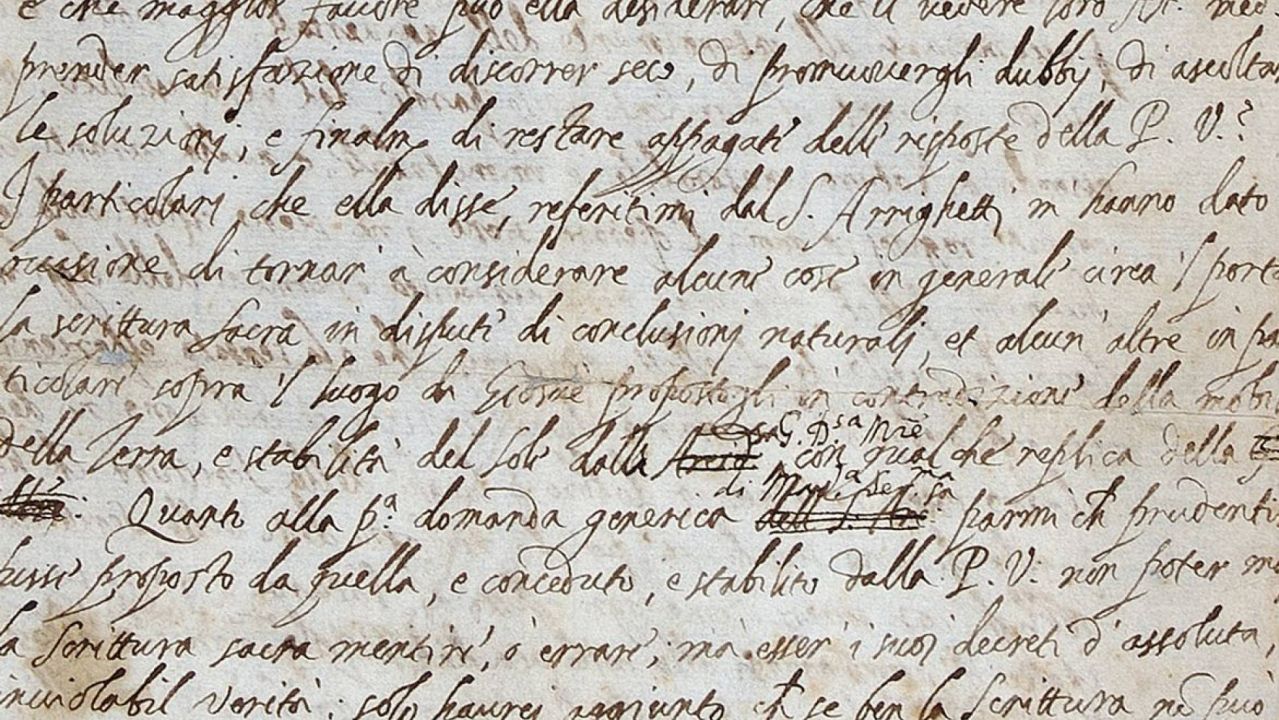 e che maggior favore può ella desiderare, che il vedere loro
prender satisfazione di discorrer seco, di promuovergli dubbij, di ascoltar
le soluzionj, e finalm. di restare appagati delle risposte della P. V.?
I particolarj che ella disse, referitimi dal S. Arrighetti, m hanno dato
occasione di tornar à considerare alcune cose in generale circa 'l porta
la scrittura sacra in dispute di conclusionj naturalj, et alcun' altre in pa
ticolare sopra 'l luogo di Giosuè propostogli in contradizione della mobi
della Terra, e stabilità del Sole dalla G. D.sa Mre con qualche replica della
di Mad.a Ser.ma
Quanto alla p.a domanda generica parmi ch prudentis
fusse proposto da quella, e conceduto, e stabilito dalla P. V. non poter ma
la Scrittura sacra mentire, ò errare; mà esser i suoi decreti d'assoluta,
inviolabil verità; solo haurej aggiunto ch se ben la Scrittura nō può